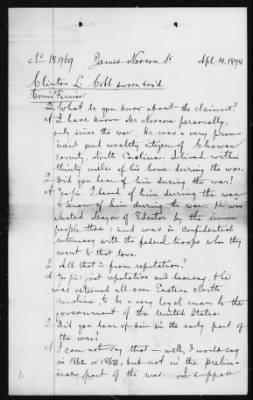 No 18,969 James Norcom Jr Apl 4, 1874
Clinton L. Cobb sworn & ex'd
Com'r Ferriss
Q What do you know about the claimant?
A I have known Mr Norcom personally,
only since the war. He was a very prom-
inent and wealthy citizen of Chowan
county, North Carolina. I lived within
thirty miles of his home during the war.
Q Did you hear of him during the war?
A Yes sir I heard of him during the war
& knew of him during the war. He was
elected Mayor of Edenton by the union
people there; and was in confidential
intimacy with the federal troops when they
went to that town.
Q All that is from reputation?
A Yes sir, just reputation and hearsay, & he
was esteemed all over Eastern North
Carolina to be a very loyal man to the
government of the United States.
Q Did you hear of him in the early part of
the war?
A I can not say that – well, I would say
in 1862 or 1863, but not in the prelim-
inary part of the war. I suppose
1.